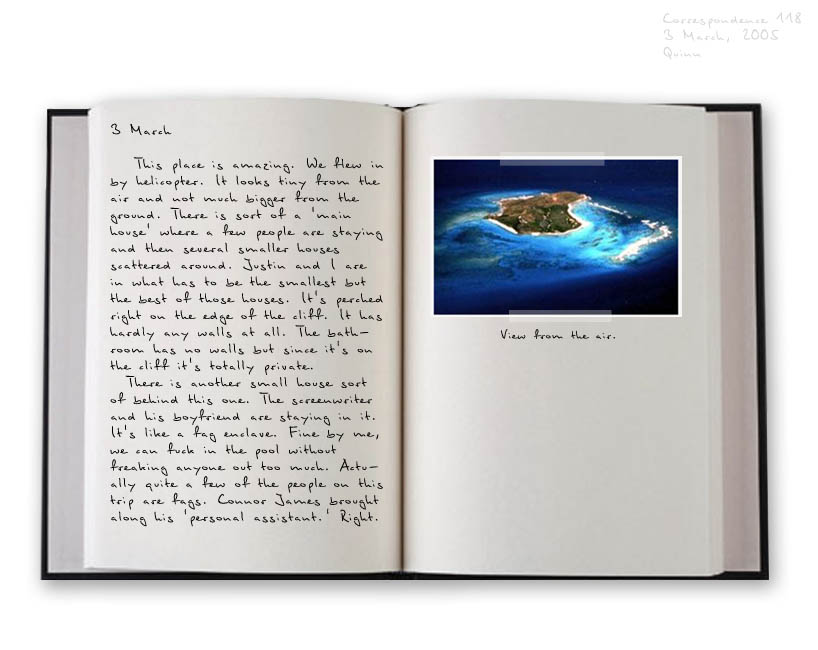 Correspondence 118
3 March, 2005
Quinn
3 March
This place is amazing. We flew in
by helicopter. It looks tiny from the
air and not much bigger from the
ground. There is sort of a 'main
house' where a few people are staying
and then several smaller houses
scattered around. Justin and I are
in what has to be the smallest but
the best of those houses. It's perched
right on the edge of the cliff. It has
hardly any walls at all. The bath-
room has no walls but since it's on
the cliff it's totally private.
There is another small house sort
of behind this one. The screenwriter
and his boyfriend are staying in it.
It's like a fag enclave. Fine by me,
we can fuck in the pool without
freaking anyone out too much. Actu-
ally quite a few of the people on this
trip are fags. Connor James brought
along his 'personal assistant.' Right.
View from the air.